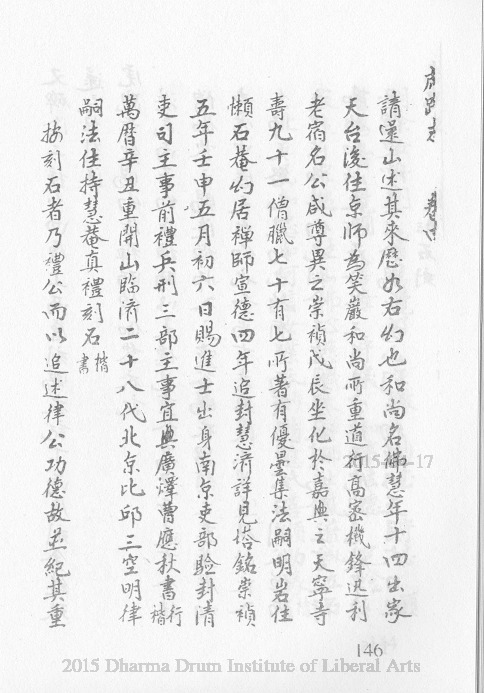 請還山述其來歷如右幻也和尚名佛慧年十四出家
天台後住京師為笑巖和尚所重道行高密機鋒迅利
老宿名公咸尊異之崇禎戊辰坐化於嘉興之天寧寺
壽九十一僧臘七十有七所著有優曇集法嗣明岩住
懶石菴幻居禪師宣德四年追封慧濟詳見塔銘崇禎
五年壬申五月初六日賜進士出身南京吏部驗封清
吏司主事前禮兵刑三部主事宜興廣烶曹應秋書行楷
萬曆辛丑重開山臨濟二十八代北京比邱三空明律
嗣法住持慧菴真禮刻石楷書
按刻石者乃禮公而以追述律公功德故並紀其重
146
2015 Dharma Drum Institute of Liberal Arts